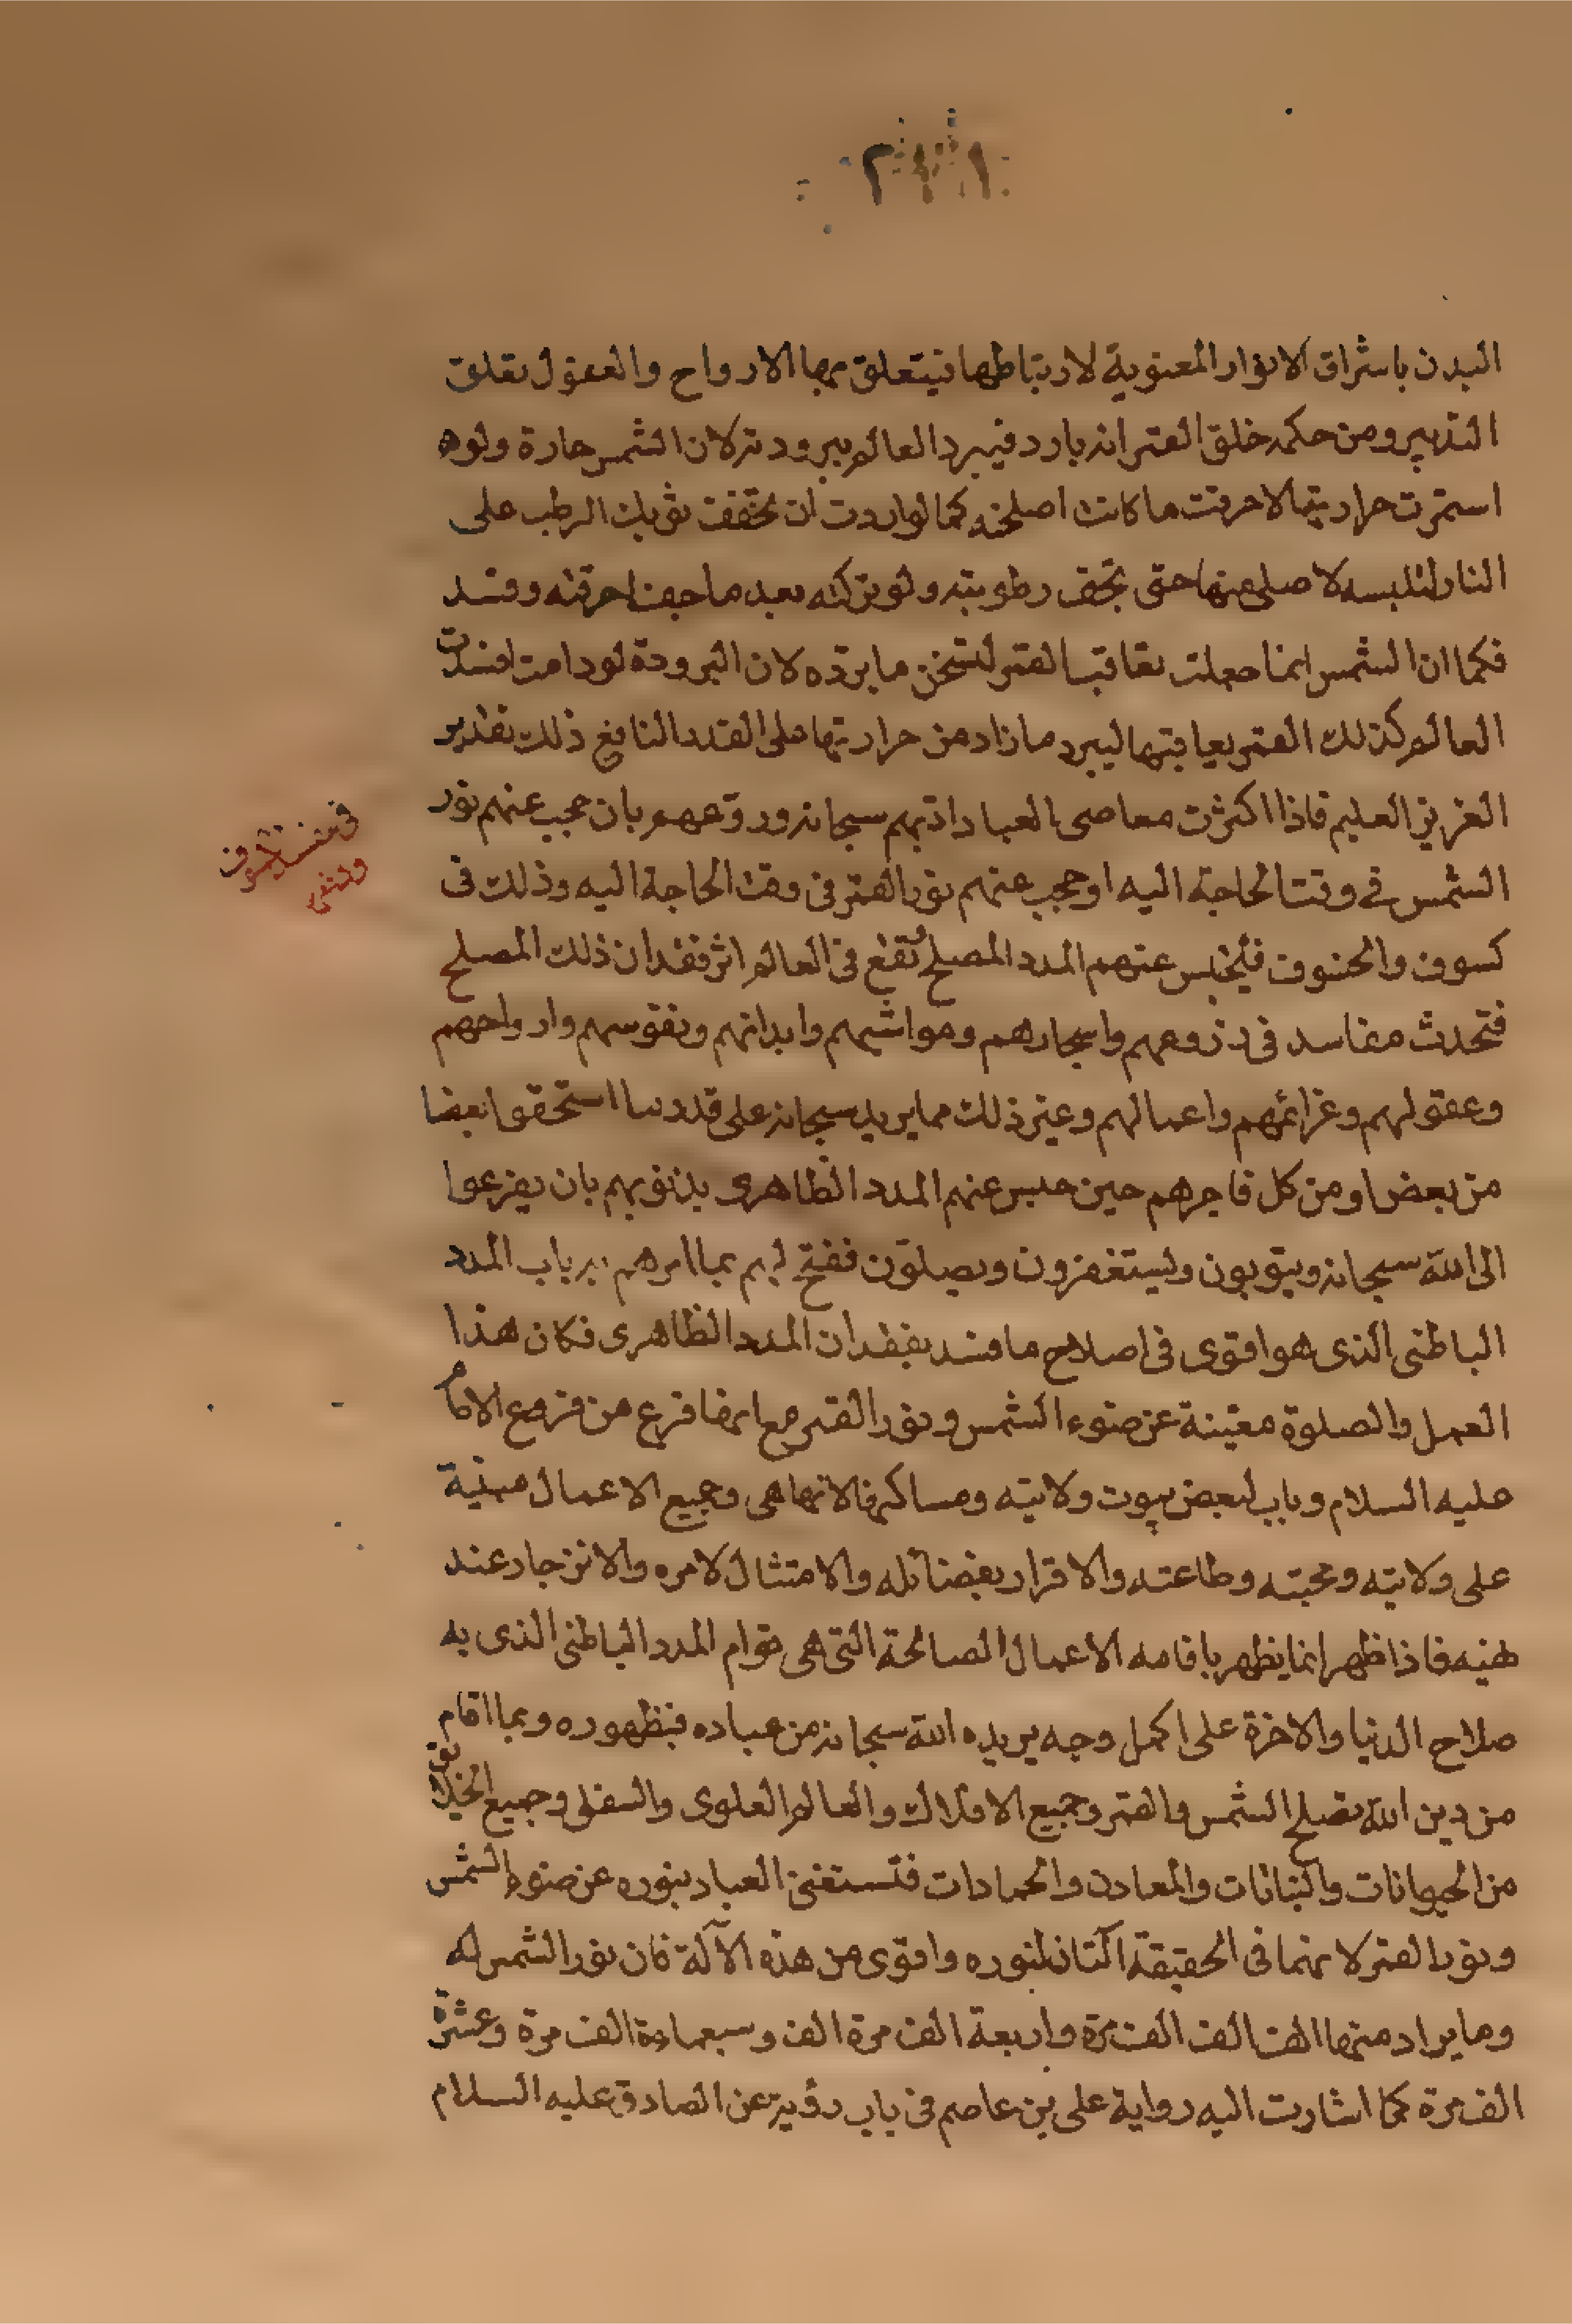 البدن باشراق الانوار المعنوية لارتباطها فيتعلق بها الارواح والعقول تعلق
التدبير ومن حكمة خلق القمر انه بارد فيبرد العالم ببرودته لان الشمس حارة ولو
استمرت حرارتها لاحرقت ما كانت اصلحته كما لو اردت ان تخفف ثوبك الرطب على
النار لتلبسه لاصلح منها حتى تجف رطوبته ولو تركته بعد ما جف احرقته وفسد
فكما ان الشمس انما جعلت تعاقب القمر لتسخن ما برّده لان البرودة لو دامت افسدت
العالم كذلك القمر يعاقبها ليبرد ما زاد من حرارتها على القدر النافع ذلك تقدير
العزيز العليم فاذا اكثرت معاصى العباد ادبهم سبحانه وروّعهم بان حجب عنهم نور
الشمس في وقت الحاجة اليه او حجب عنهم نور القمر فى وقت الحاجة اليه وذلك فى
كسوف والخسوف فيحتبس عنهم المدد المصلح فتقع فى العالم اثر فقدان ذلك المصلح
فتحدث مفاسد فى زروعهم واشجارهم ومواشيهم وابدانهم ونفوسهم وارواحهم
وعقولهم وعزائمهم واعمالهم وغير ذلك مما يريد سبحانه على قدر ما استحقوا بعضا
من بعض او من كل فاجرهم حين حبس عنهم المدد الظاهرى بذنوبهم بان يفزعوا
الى الله سبحانه ويتوبون ويستغفرون ويصلون ففتح لهم بما امرهم به باب المدد
الباطنى الذى هو اقوى فى اصلاح ما فسد بفقدان المدد الظاهرى فكان هذا
العمل والصلوة مغنية عن ضوء الشمس ونور القمر مع انها فرع من فروع الامام
عليه السلام وباب لبعض بيوت ولايته ومساكنها لانها هى وجميع الاعمال مبنية
على ولايته ومحبته وطاعته والاقرار بفضائله والامتثال لامره والانزجار عند
نهيه فاذا ظهر انما يظهر باقامه الاعمال الصالحة التى هى قوام المدد الباطنى الذى به
صلاح الدنيا والاخرة على اكمل وجه يريده الله سبحانه من عباده فبظهوره وبما اقام
من دين الله تصلح الشمس والقمر وجميع الافلاك والعالم العلوى والسفلى وجميع الخلائق
من الحيوانات والنباتات والمعادن والجمادات فتستغنى العباد بنوره عن ضوء الشمس
ونور القمر لانهما فى الحقيقة آلتان لنوره واقوى من هذه الآلة فان نور الشمس له
وما يراد منها الف الف الف مرة واربعة الف مرة الف وسبعمادة الف مرة وعشرة
الف مرة كما اشارت اليه رواية على بن عاصم فى باب رؤيته عن الصادق عليه السلام